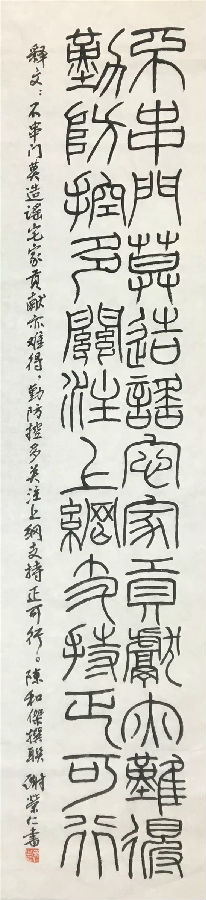 不串門莫造謡宅家貢獻亦難得
勤防控多關注上網支持正可行
释文：不串门莫造谣宅家贡献亦难得，勤防控多关注上网支持正可行。陳和傑撰联 谢荣仁書